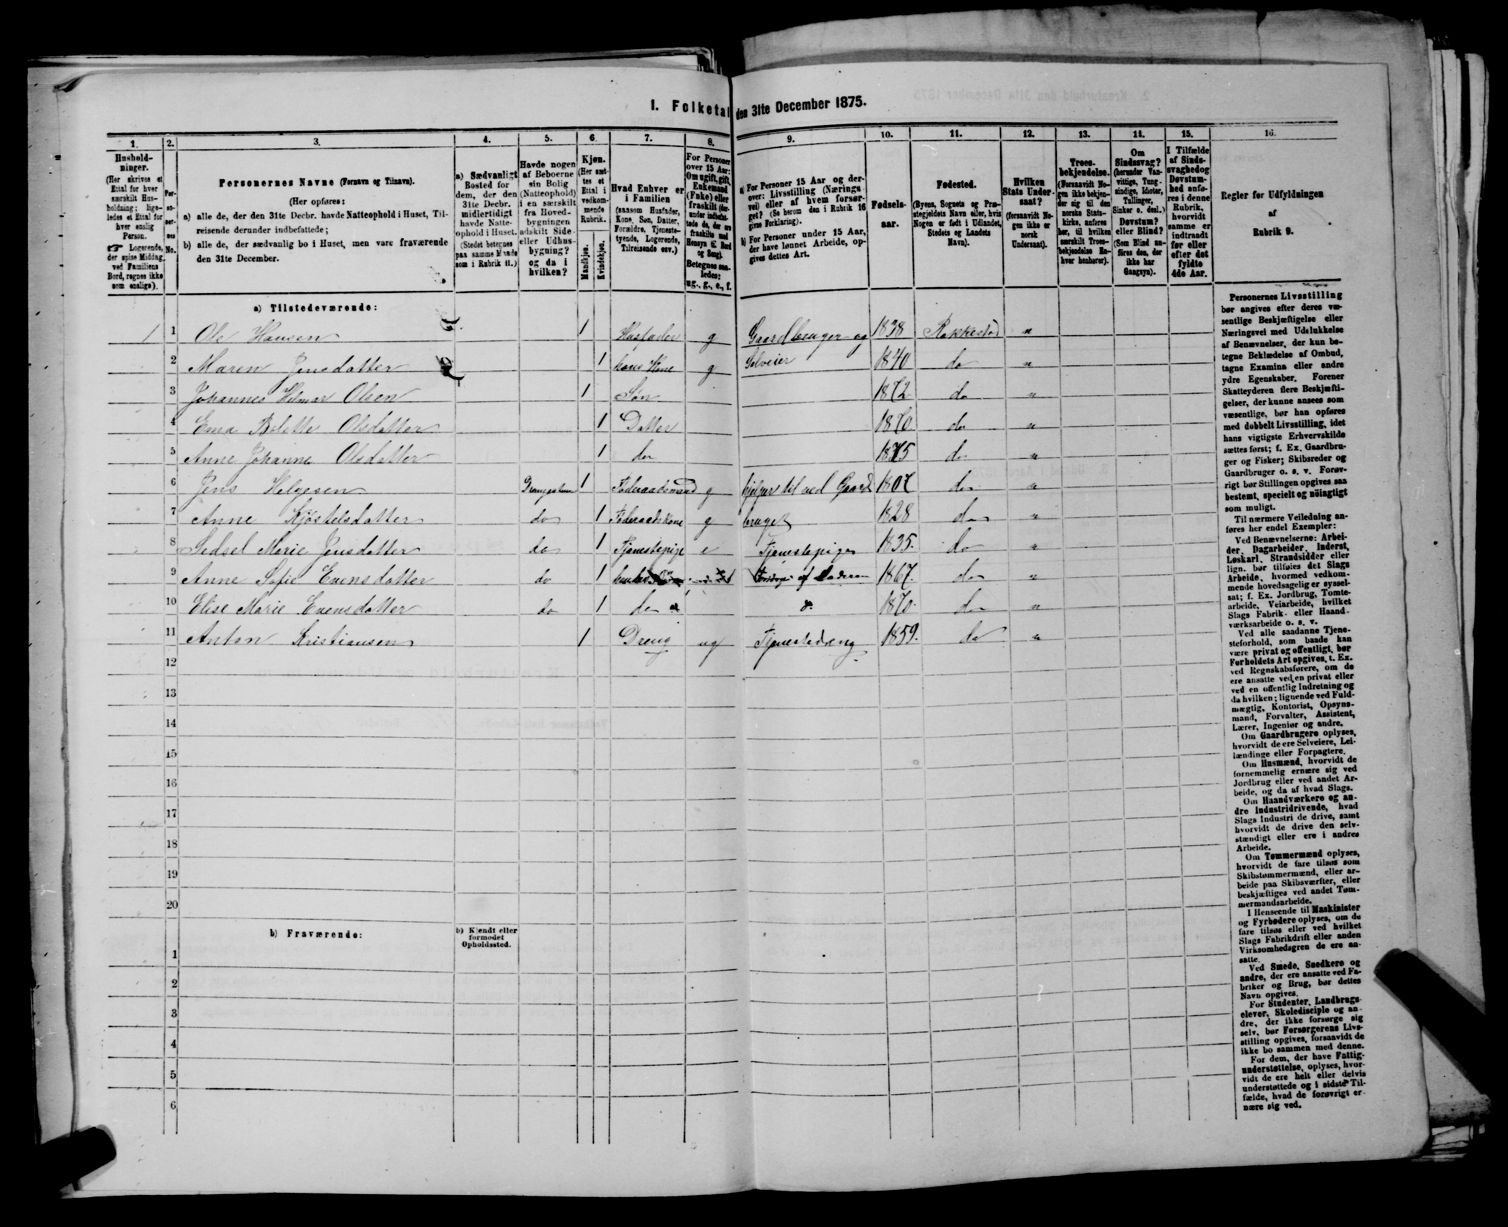 I. Folketal den 31te December 1875.
1. 2. 3. 4. 5. 6. 7. 8. 9. 10. 11. 12. 13. 14. 15. 16.
Husholdninger.
(Her skrives et Ettal for hver særskilt Husholdning; ligeledes et Ettal for hver enslig Person.
☞ Logerende, der spise Middag ved Familiens Bord, regnes ikke som enslige).
Personernes No.
Personernes Navne (Fornavn og Tilnavn).
(Her opføres:
a) alle de, der den 31te Decbr. havde Natteophold i Huset, Tilreisende derunder indbefattede;
b) alle de, der sædvanlig bo i Huset, men vare fraværende den 31te December.
a) Sædvanligt Bosted for dem, der den 31te Decbr. midlertidigt havde Natteophold i Huset.
(Stedet betegnes paa samme Maade som i Rubrik 11.)
Havde nogen af Beboerne sin Bolig (Natteophold) i en særskilt fra Hovedbygningen adskilt Side- eller Udhusbygning? og da i hvilken?
Kjøn.
(Her sættes et Ettal i vedkommende Rubrik.
Mandkjøn.
Kvindekjøn.
Hvad Enhver er i Familien
(saasom Husfader, Kone, Søn, Datter, Forældre, Tjenestetyende, Logerende, Tilreisende osv.)
For Personer over 15 Aar: Om ugift, gift, Enkemand (Enke) eller fraskilt
Betegnes saaledes: ug., g., e., f.
a) For Personer 15 Aar og derover: Livsstilling (Næringsvei) eller af hvem forsørget? (Se herom den i Rubrik 16 givne Forklaring).
b) For Personer under 15 Aar, der have lønnet Arbeide, opgives dettes Art.
Fødselsaar.
Fødested.
(Byens, Sognets og Præstegjeldets Navn eller, hvis Nogen er født i Udlandet, Stedets og Landets Navn).
Hvilken Stats Undersaat?
(forsaavidt Nogen ikke er norsk Undersaat).
Troesbekjendelse.
(Forsaavidt Nogen ikke bekjender sig til den norske Statskirke, anføres her, til hvilken særskilt Troesbekjendelse Enhver henhører).
Om Sindssvag? (herunder Vanvittige, Tungsindige, Idioter, Tullinger, Sinker o. desl.) Døvstum? eller Blind?
(Som Blind anføres den, der ikke har Gangsyn).
I Tilfælde af Sindssvaghed og Døvstumhed anføres i denne Rubrik, hvorvidt samme er indtraadt før eller efter det fyldte 4de Aar.
Regler for Udfyldningen af Rubrik 9.
a) Tilstedeværende:
1 1 Ole Hansen 1 Husfader g Gaardbruger og 1838 Rakkestad "
2 Maren Jensdatter 1 hans Kone g Selveier 1840 do "
3 Johannes Hilmar Olsen 1 Søn 1872 do "
4 Ema Bolette Olsdatter 1 Datter 1870 do "
5 Anne Johanne Olsdatter 1 do 1875 do "
6 Jens Helgesen 1 Føderaadsmand g hjelper til ved Gaard 1807 do "
7 Anne Kjøstelsdatter do 1 Føderaadskone g bruget 1828 do "
8 Sidsel Marie Jensdatter do 1 Tjenestepige e Tjenestepige 1835. do "
9 Anne Sofie Evensdatter do 1 af Moderen 1867. do "
10 Elise Marie Evensdatter do 1 do 1870. do "
11 Anton Kristiansen 1 Dreng ug Tjenestedreng 1859. do "
12
13
14
15
16
17
18
19
20
b) Fraværende:
b) Kjendt eller formodet Opholdssted.
1
2
3
4
5
6
Personernes Livsstilling bør angives efter deres væsentlige Beskjæftigelse eller Næringsvei med Udelukkelse af Benævnelser, der kun betegne Beklædelse af Ombud, tagne Examina eller andre ydre Egenskaber. Forener Skatteyderen flere Beskjæftigelser, der kunne ansees som væsentlige, bør han opføres med dobbelt Livsstilling, idet hans vigtigste Erhvervskilde sættes først; f. Ex. Gaardbruger og Fisker; Skibsreder og Gaardbruger o. s. v. Forøvrigt bør Stillingen opgives saa bestemt, specielt og nøiagtigt som muligt.
Til nærmere Veiledning anføres her endel Exempler:
Ved Benævnelserne: Arbeider, Dagarbeider, Inderst, Løskarl, Strandsidder eller lign. bør tilføies det Slags Arbeide, hvormed vedkommende hovedsagelig er sysselsat; f. Ex. Jordbrug, Tomtearbeide, Veiarbeide, hvilket Slags Fabrik- eller Haandværksarbeide o. s. v.
Ved alle saadanne Tjenesteforhold, som baade kan være privat og offentligt, bør Forholdets Art opgives, t. Ex. ved Regnskabsførere, om de ere ansatte ved en privat eller ved en offentlig Indretning og da hvilken; lignende ved Fuldmægtig, Kontorist, Opsynsmand, Forvalter, Assistent, Lærer, Ingeniør og andre.
Om Gaardbrugere oplyses, hvorvidt de ere Selveiere, Leilændinge eller Forpagtere.
Om Husmænd, hvorvidt de fornemmelig ernære sig ved Jordbrug eller ved andet Arbeide, og da af hvad Slags.
Om Haandværkere og andre Industridrivende, hvad Slags Industri de drive, samt hvorvidt de drive den selvstændigt eller ere i andres Arbeide.
Om Tømmermænd oplyses, hvorvidt de fare tilsøs som Skibstømmermænd, eller arbeide paa Skibsværfter, eller beskjæftiges ved andet Tømmermandsarbeide.
I Henseende til Maskinister og Fyrbødere oplyses, om de fare tilsøs eller ved hvilket Slags Fabrikdrift eller anden Virksomhedsgren de ere ansatte.
Ved Smede, Snedkere og andre, der ere ansatte ved Fabriker og Brug, bør dettes Navn opgives.
For Studenter, Landbrugselever, Skoledisciple og andre, der ikke forsørge sig selv, bør Forsørgerens Livsstilling opgives, forsaavidt de ikke bo sammen med denne.
For dem, der have Fattigunderstøttelse, oplyses, hvorvidt de ere helt eller delvis understøttede og i sidste Tilfælde, hvad de forøvrigt ernære sig ved.